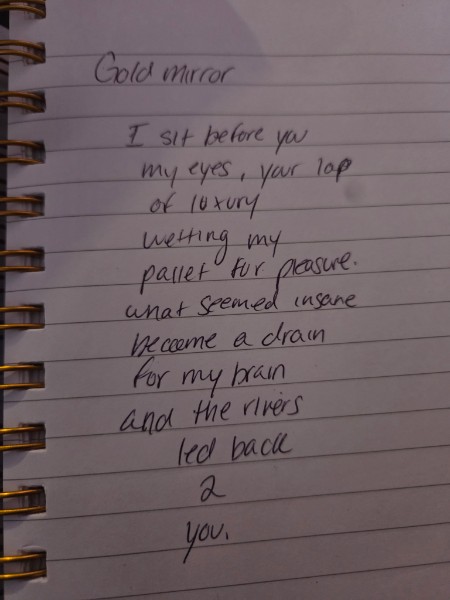 Gold mirror
I sit before you
my eyes, your lap
of luxury
wetting my
pallet for pleasure.
what seemed insane
become a drain
for my brain
and the rivers
led back
2
you.